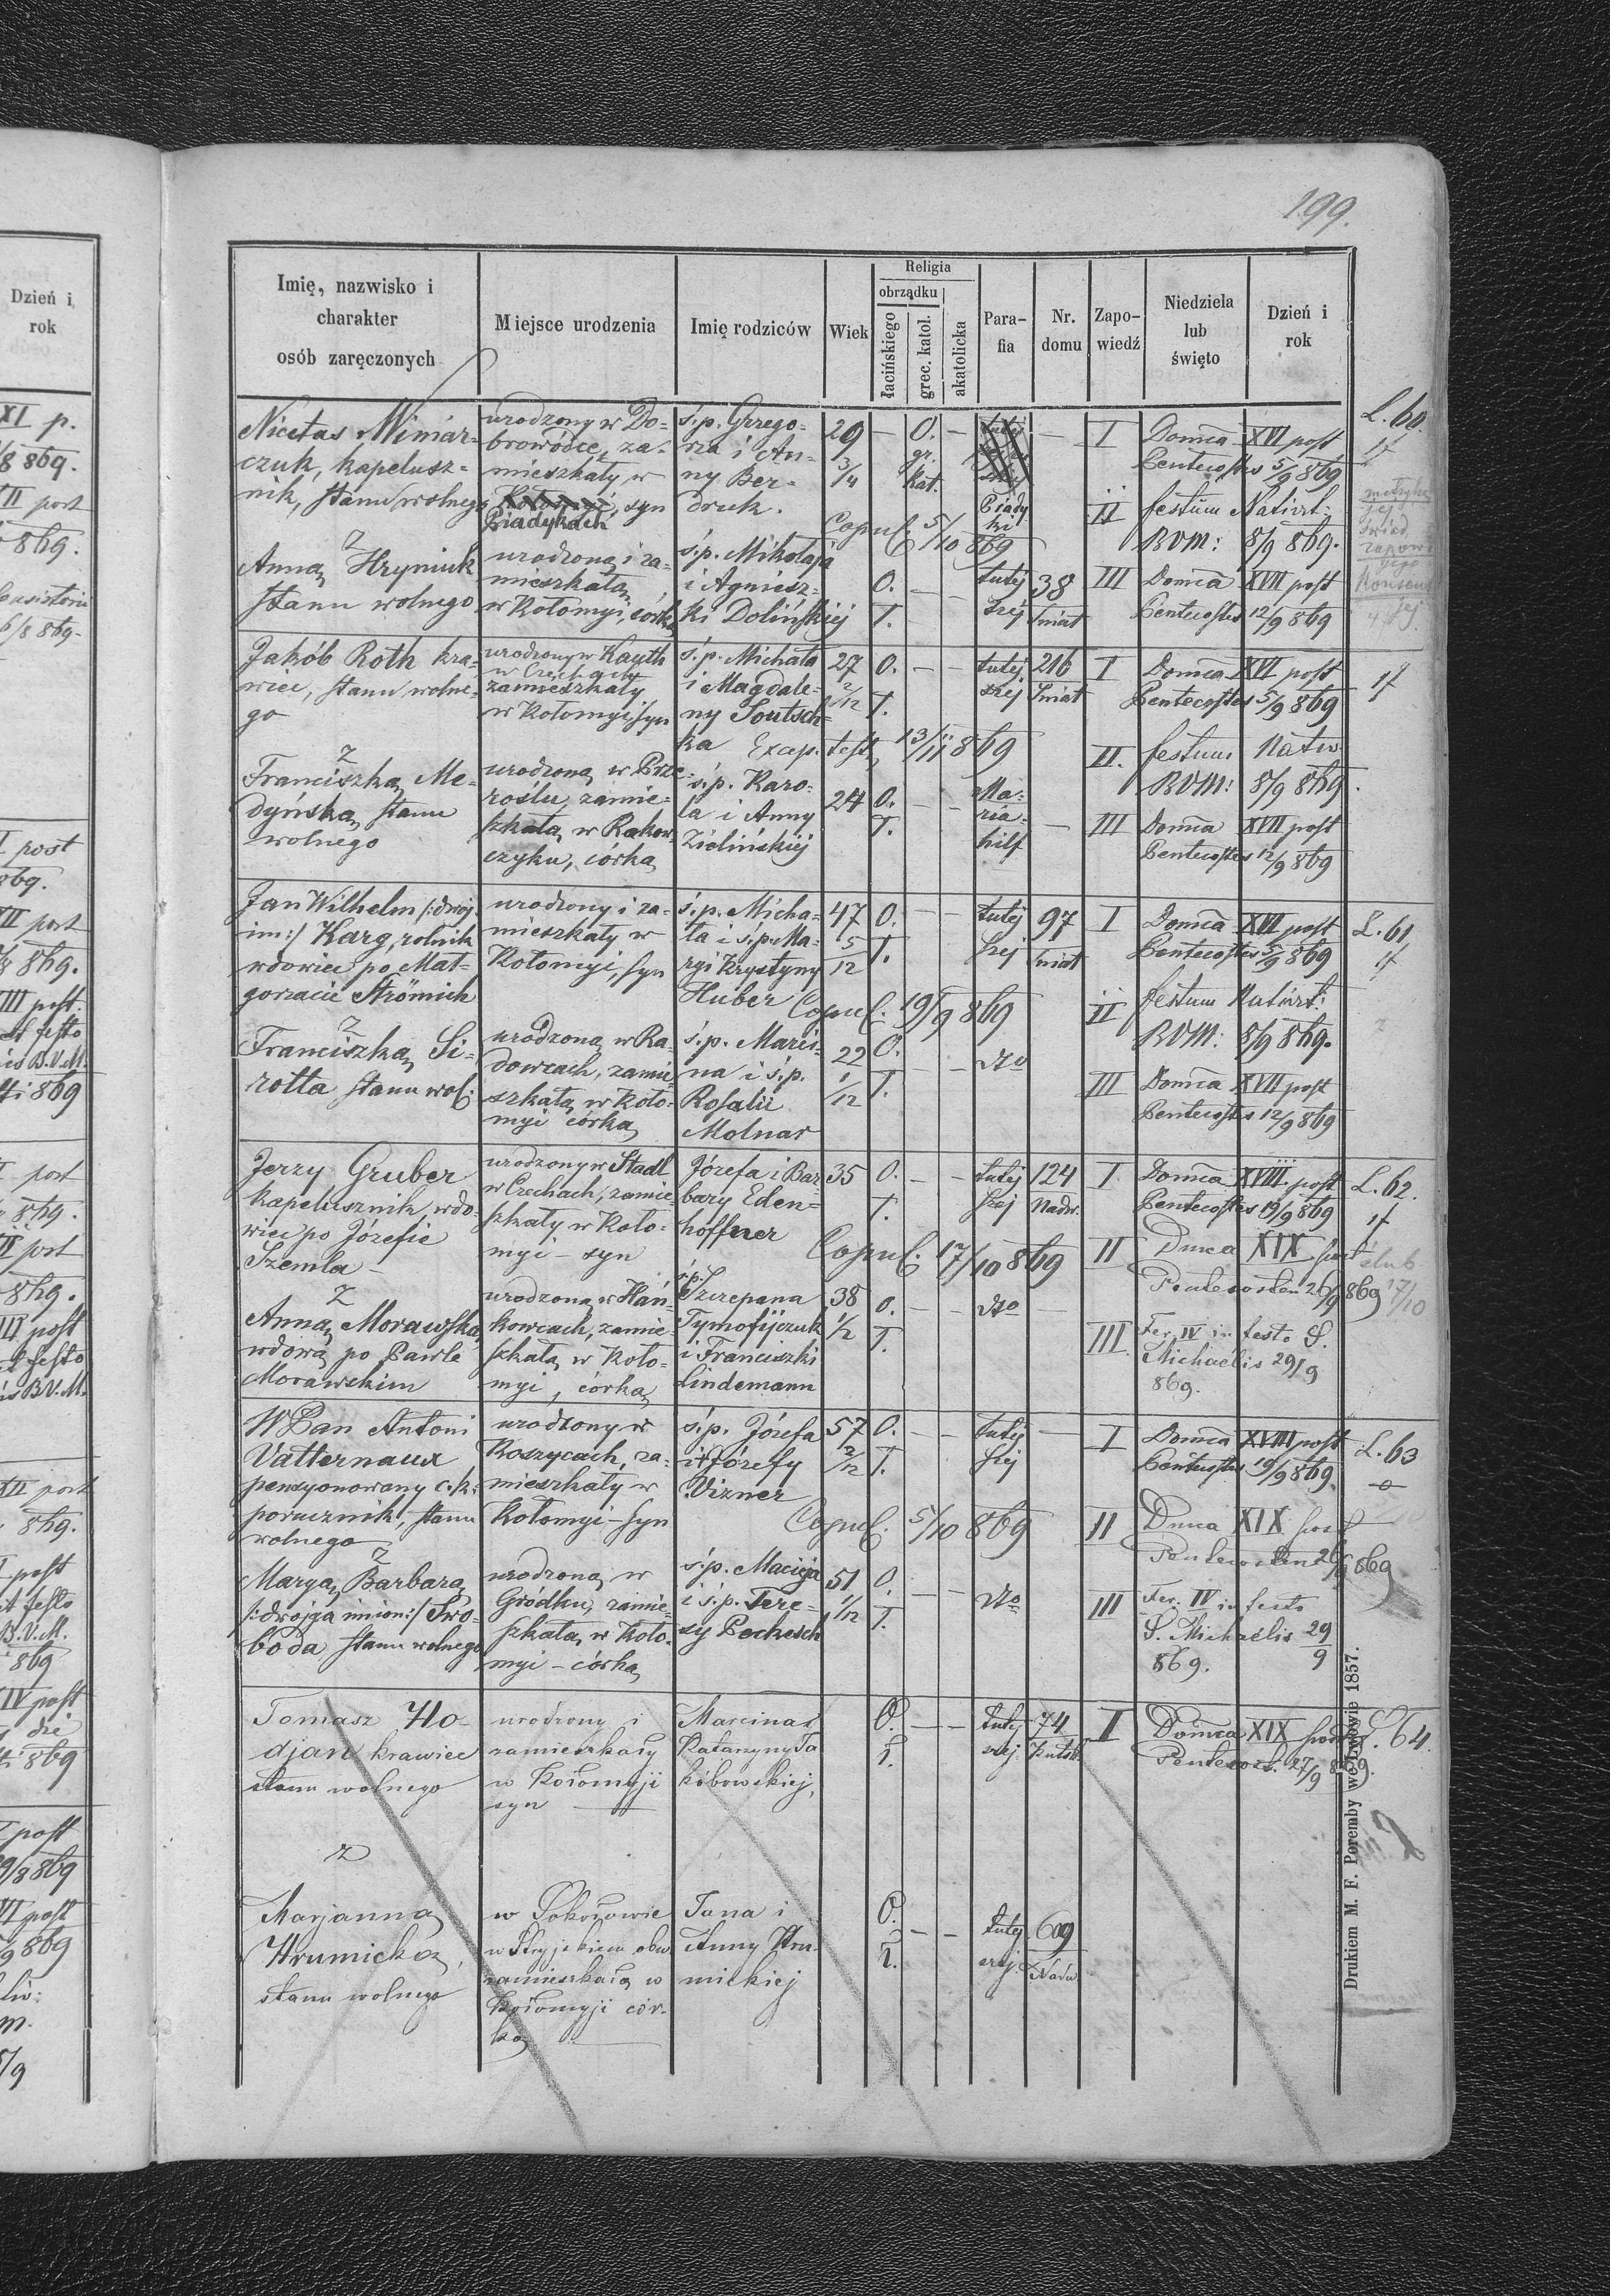 199.
Imię, nazwisko i charakter osób zaręczonych
Miejsce urodzenia
Imię rodziców
Wiek
Religia
obrządku
łacińskiego
grec. katol.
akatolicka
Para-
fia
Nr.
domu
Zapo-
wiedź
Niedziela
lub
święto
Dzień i
rok
Nicetas Mimiar-
czuk, kapelusz-
nik, stanu wolnego
urodzony w Do-
browódce, za-
mieszkały w
Piadykach, syn
ś.p. Grzego-
rza i An-
ny Ber-
druk.
29 3/4
O. gr. kat.
Piady
ki
I Domca XVI post
Pentecostes 5/9 869
L. 60.
II festum Nativit:
BVM: 8/9 869.
Copul. 5/10 869
z
Anną Hryniuk
stanu wolnego
urodzoną i za-
mieszkałą
w Kołomyi, córką
ś.p. Mikołaja
i Agniesz-
ki Dolińskiej
O. T.
tutej
szej
38
Śniat
III Domca XVII post
Pentecostes 12/9 869
Jakób Roth kra-
wiec, stanu wolne-
go
urodzony w Kauth
w Czechach
zamieszkały
w Kołomyi, syn
ś.p. Michała
i Magdale-
ny Soutsch-
ka
27 2/12
O. T.
tutej
szej
216
Śniat
I Domca XVI post
Pentecostes 5/9 869
Excep. test. 13/11 869
II. festum Nativ.
BVM: 8/9 869.
z
Franciszką Me-
dyńską stanu
wolnego
urodzoną w Prze-
roślu, zamie-
szkałą w Rakow-
czyku, córką
ś.p. Karo-
la i Anny
Zielińskiej
24
O. T.
Ma-
ria-
hilf
III Domca XVII post
Pentecostes 12/9 869
Jan Wilhelm /:dwój.
im:/ Karg, rolnik
wdowiec po Mał-
gorzacie Strömich
urodzony i za-
mieszkały w
Kołomyi, syn
ś.p. Micha-
ła i ś.p. Ma-
ryi Krystyny
Huber
47 5/12
O. T.
tutej
szej
97
Śniat
I Domca XVI post
Pentecostes 5/9 869
L. 61
Copul. 19/9 869
II festum Nativit:
BVM: 8/9 869.
z
Franciszką Si-
rotta stanu wol:
urodzoną w Ra-
dowcach, zamie-
szkałą w Koło-
myi córką
ś.p. Marci-
na i ś.p.
Rosalii
Molnar
22 1/12
O. T.
dto
III Domca XVII post
Pentecostes 12/9 869
Jerzy Gruber
kapelusznik, wdo-
wiec po Józefie
Szemla
urodzony w Stadl
w Czechach, zamie-
szkały w Koło-
myi - syn
Józefa i Bar-
bary Eden-
hoffner
35
O. T.
tutej
szej
124
Nadw.
I Domca XVIII. post
Pentecostes 19/9 869
L. 62.
Copul. 17/10 869
II Dmca XIX post
Pentecosten 26/9 869
ślub
17/10
z
Anną Morawską
wdową po Pawle
Morawskim
urodzoną w Hań-
kowcach, zamie-
szkałą w Koło-
myi, córką
ś.p.
Szczepana
Tymofijczuk
i Franciszki
Lindemann
38 1/2
O. T.
dto
III Fer. IV in festo S.
Michaelis 29/9
869.
WPan Antoni
Vatternaux
penzyonowany c.k.
porucznik, stanu
wolnego
urodzony w
Koszycach, za-
mieszkały w
Kołomyi - syn
ś.p. Józefa
i Józefy
Vizner
57 2/12
O. T.
tutej
szej
I Domca XVIII post
Pentecostes 19/9 869
L. 63
Copul. 5/10 869
II Dmca XIX post
Pentecosten 26/9 869
z
Maryą Barbarą
/:dwojga imion:/ Swo-
boda stanu wolnego
urodzoną w
Gródku, zamie-
szkałą w Koło-
myi - córką
ś.p. Macieja
i ś.p. Tere-
sy Pecksch
51 1/12
O. T.
dto
III Fer. IV in festo
S. Michaelis 29/9
869.
Tomasz Ho-
djan krawiec
stanu wolnego
urodzony i
zamieszkały
w Kołomyji
syn
Marcina i
Katarzyny Ja
kóbowskiej,
O. T.
tutej
szej
74
I Domca XIX post
Pentecost. 27/9 869.
L. 64.
z
Marjanną
Hrumicką,
stanu wolnego
w Sokołowie
w Stryjskiem obw.
zamieszkałą w
Kołomyji cór-
ką
Jana i
Anny Hru-
mickiej
O. T.
tutej
szej
609
Nadw
Drukiem M. F. Poremby we Lwowie 1857.
Dzień i
rok